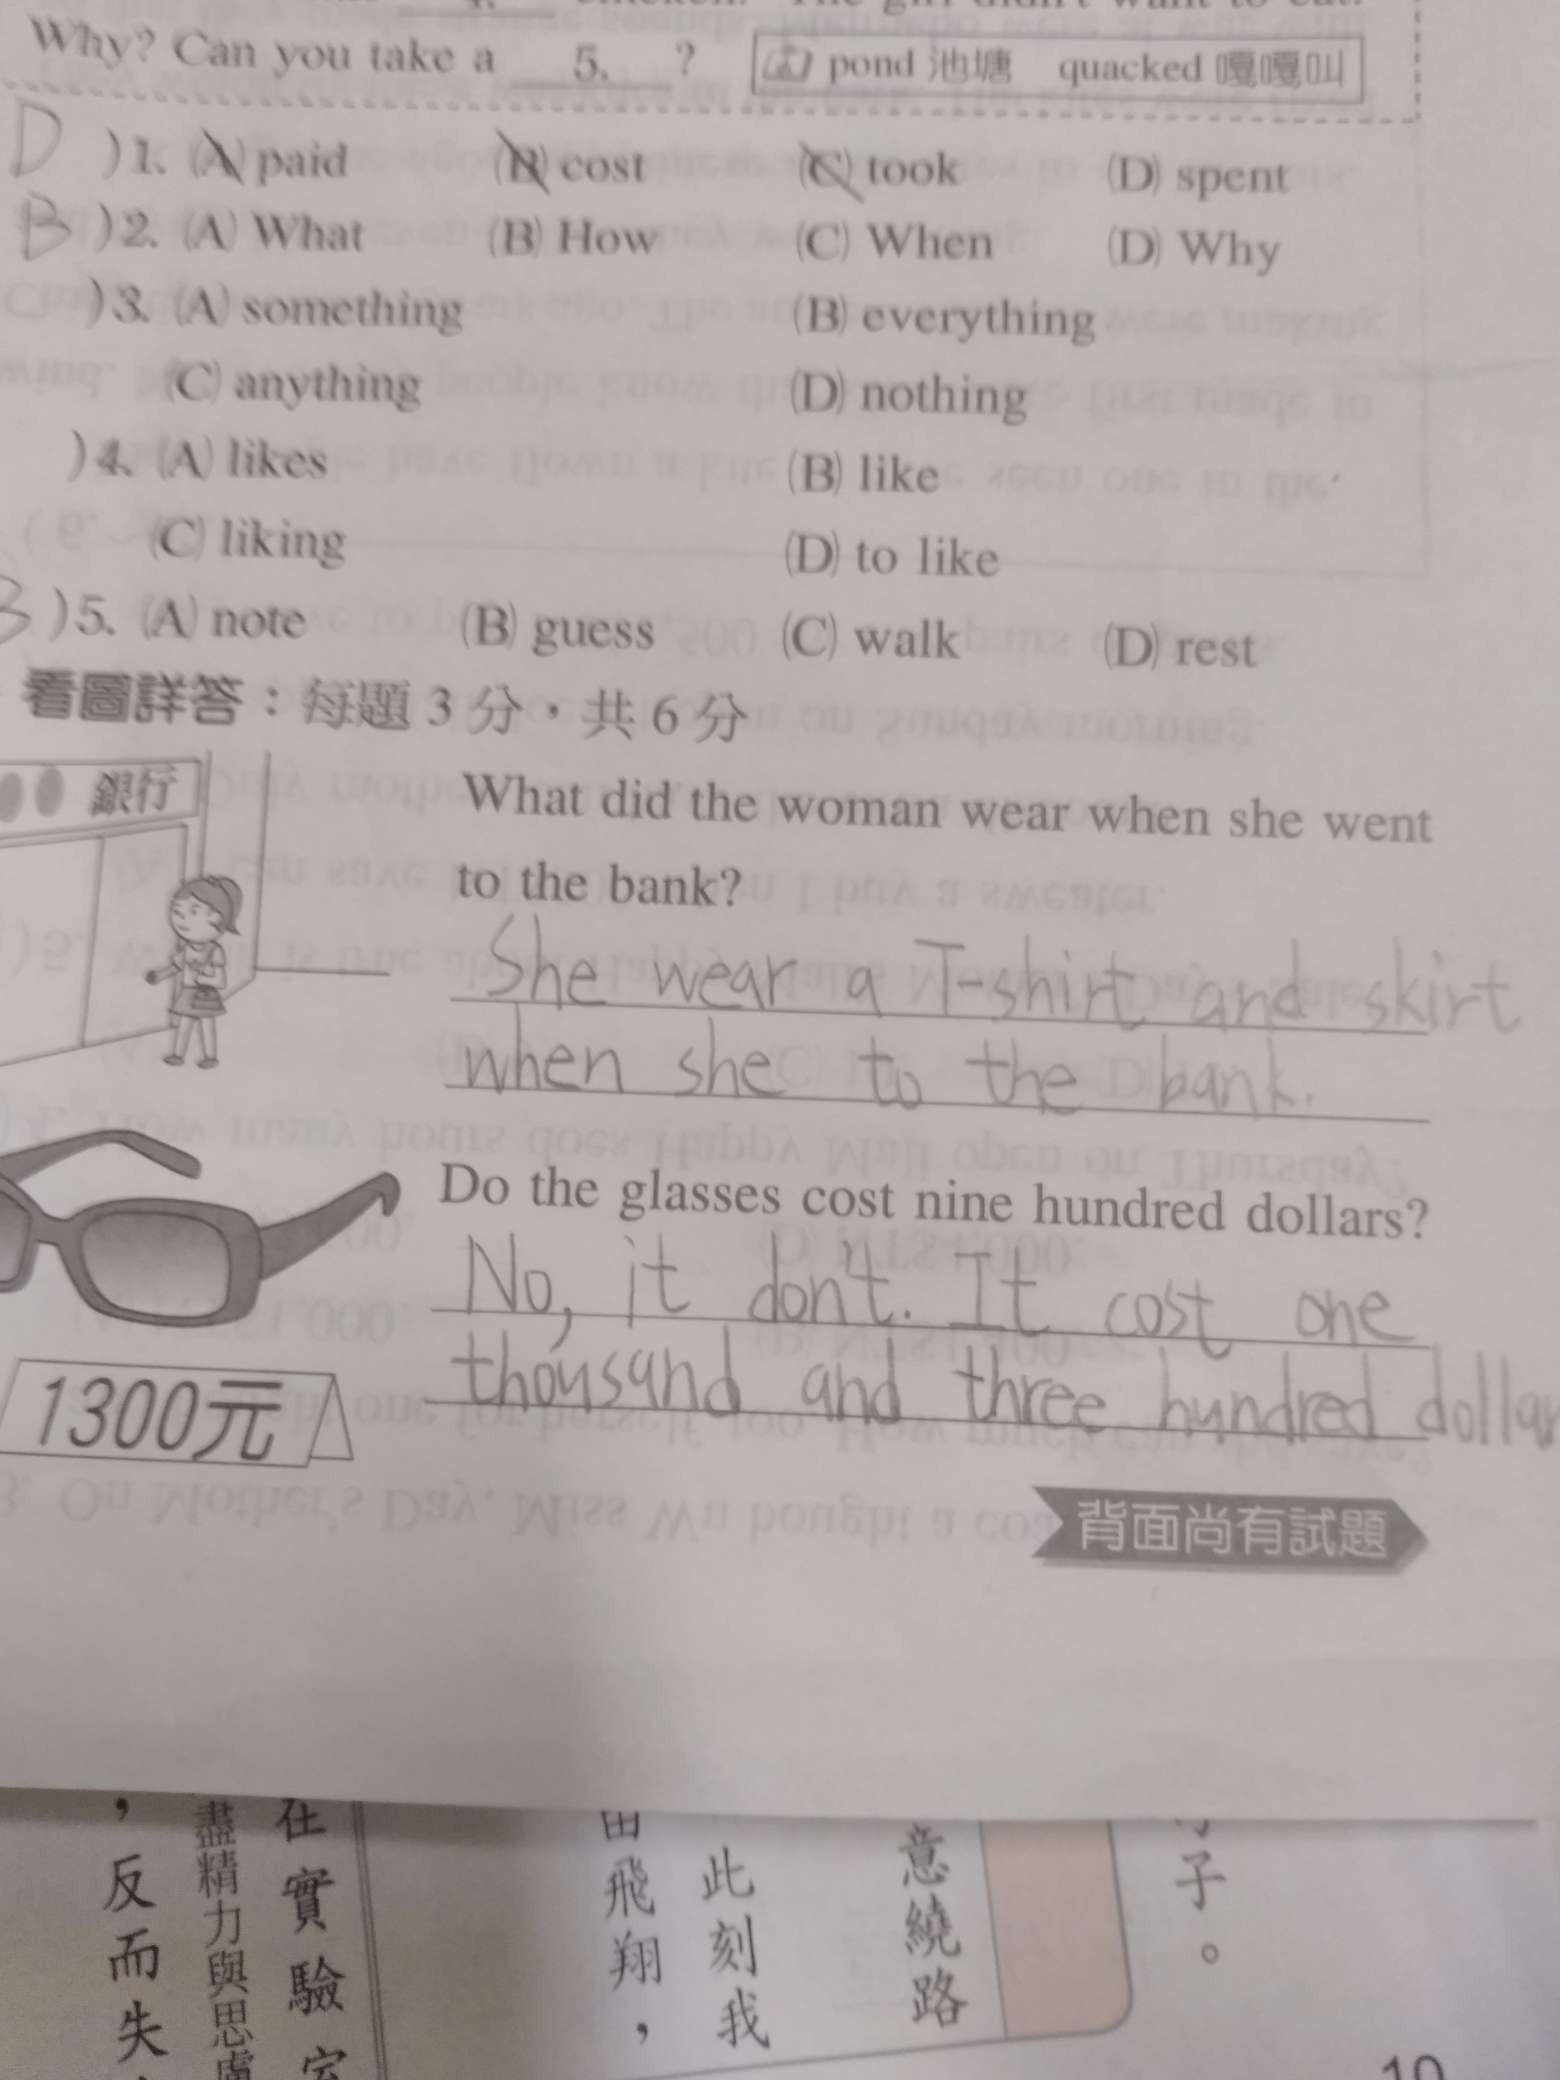 Why? Can you take a 5. ? pond 池塘 quacked 嘎嘎叫
D )1. (A) paid (B) cost (C) took (D) spent
B )2. (A) What (B) How (C) When (D) Why
)3. (A) something (B) everything
(C) anything (D) nothing
)4. (A) likes (B) like
(C) liking (D) to like
B )5. (A) note (B) guess (C) walk (D) rest
看圖詳答：每題 3 分，共 6 分
銀行
What did the woman wear when she went
to the bank?
She wear a T-shirt and skirt
when she to the bank.
Do the glasses cost nine hundred dollars?
No, it don't. It cost one
thousand and three hundred dollar
1300元
背面尚有試題
子。
意繞路
此刻我
飛翔，
在實驗室
盡精力與思慮
，反而失
10